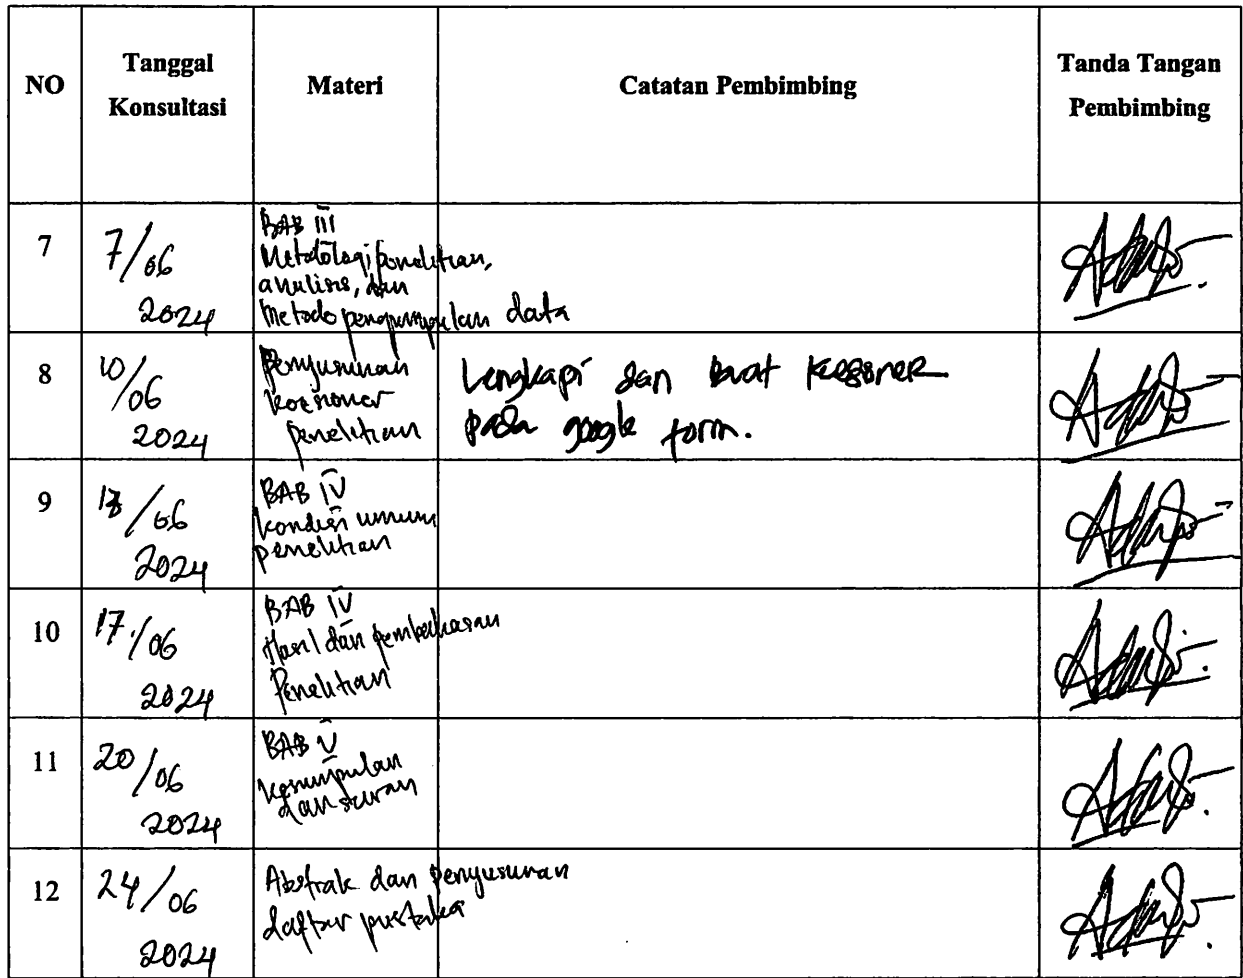 NO
Tanggal Konsultasi
Materi
Catatan Pembimbing
Tanda Tangan Pembimbing
7
7/06
2024
BAB III
Metodologi penelitian,
analisis, dan
metode pengumpulan data
8
10/06
2024
Penyusunan
koesioner
penelitian
Lengkapi dan buat
pada google form.
9
/06
2024
BAB IV
kondisi umum
penelitian
10
17/06
2024
BAB IV
Hasil dan pembahasan
Penelitian
11
20/06
2024
BAB V
kesimpulan
dan saran
12
24/06
2024
Abstrak dan Penyusunan
daftar pustaka